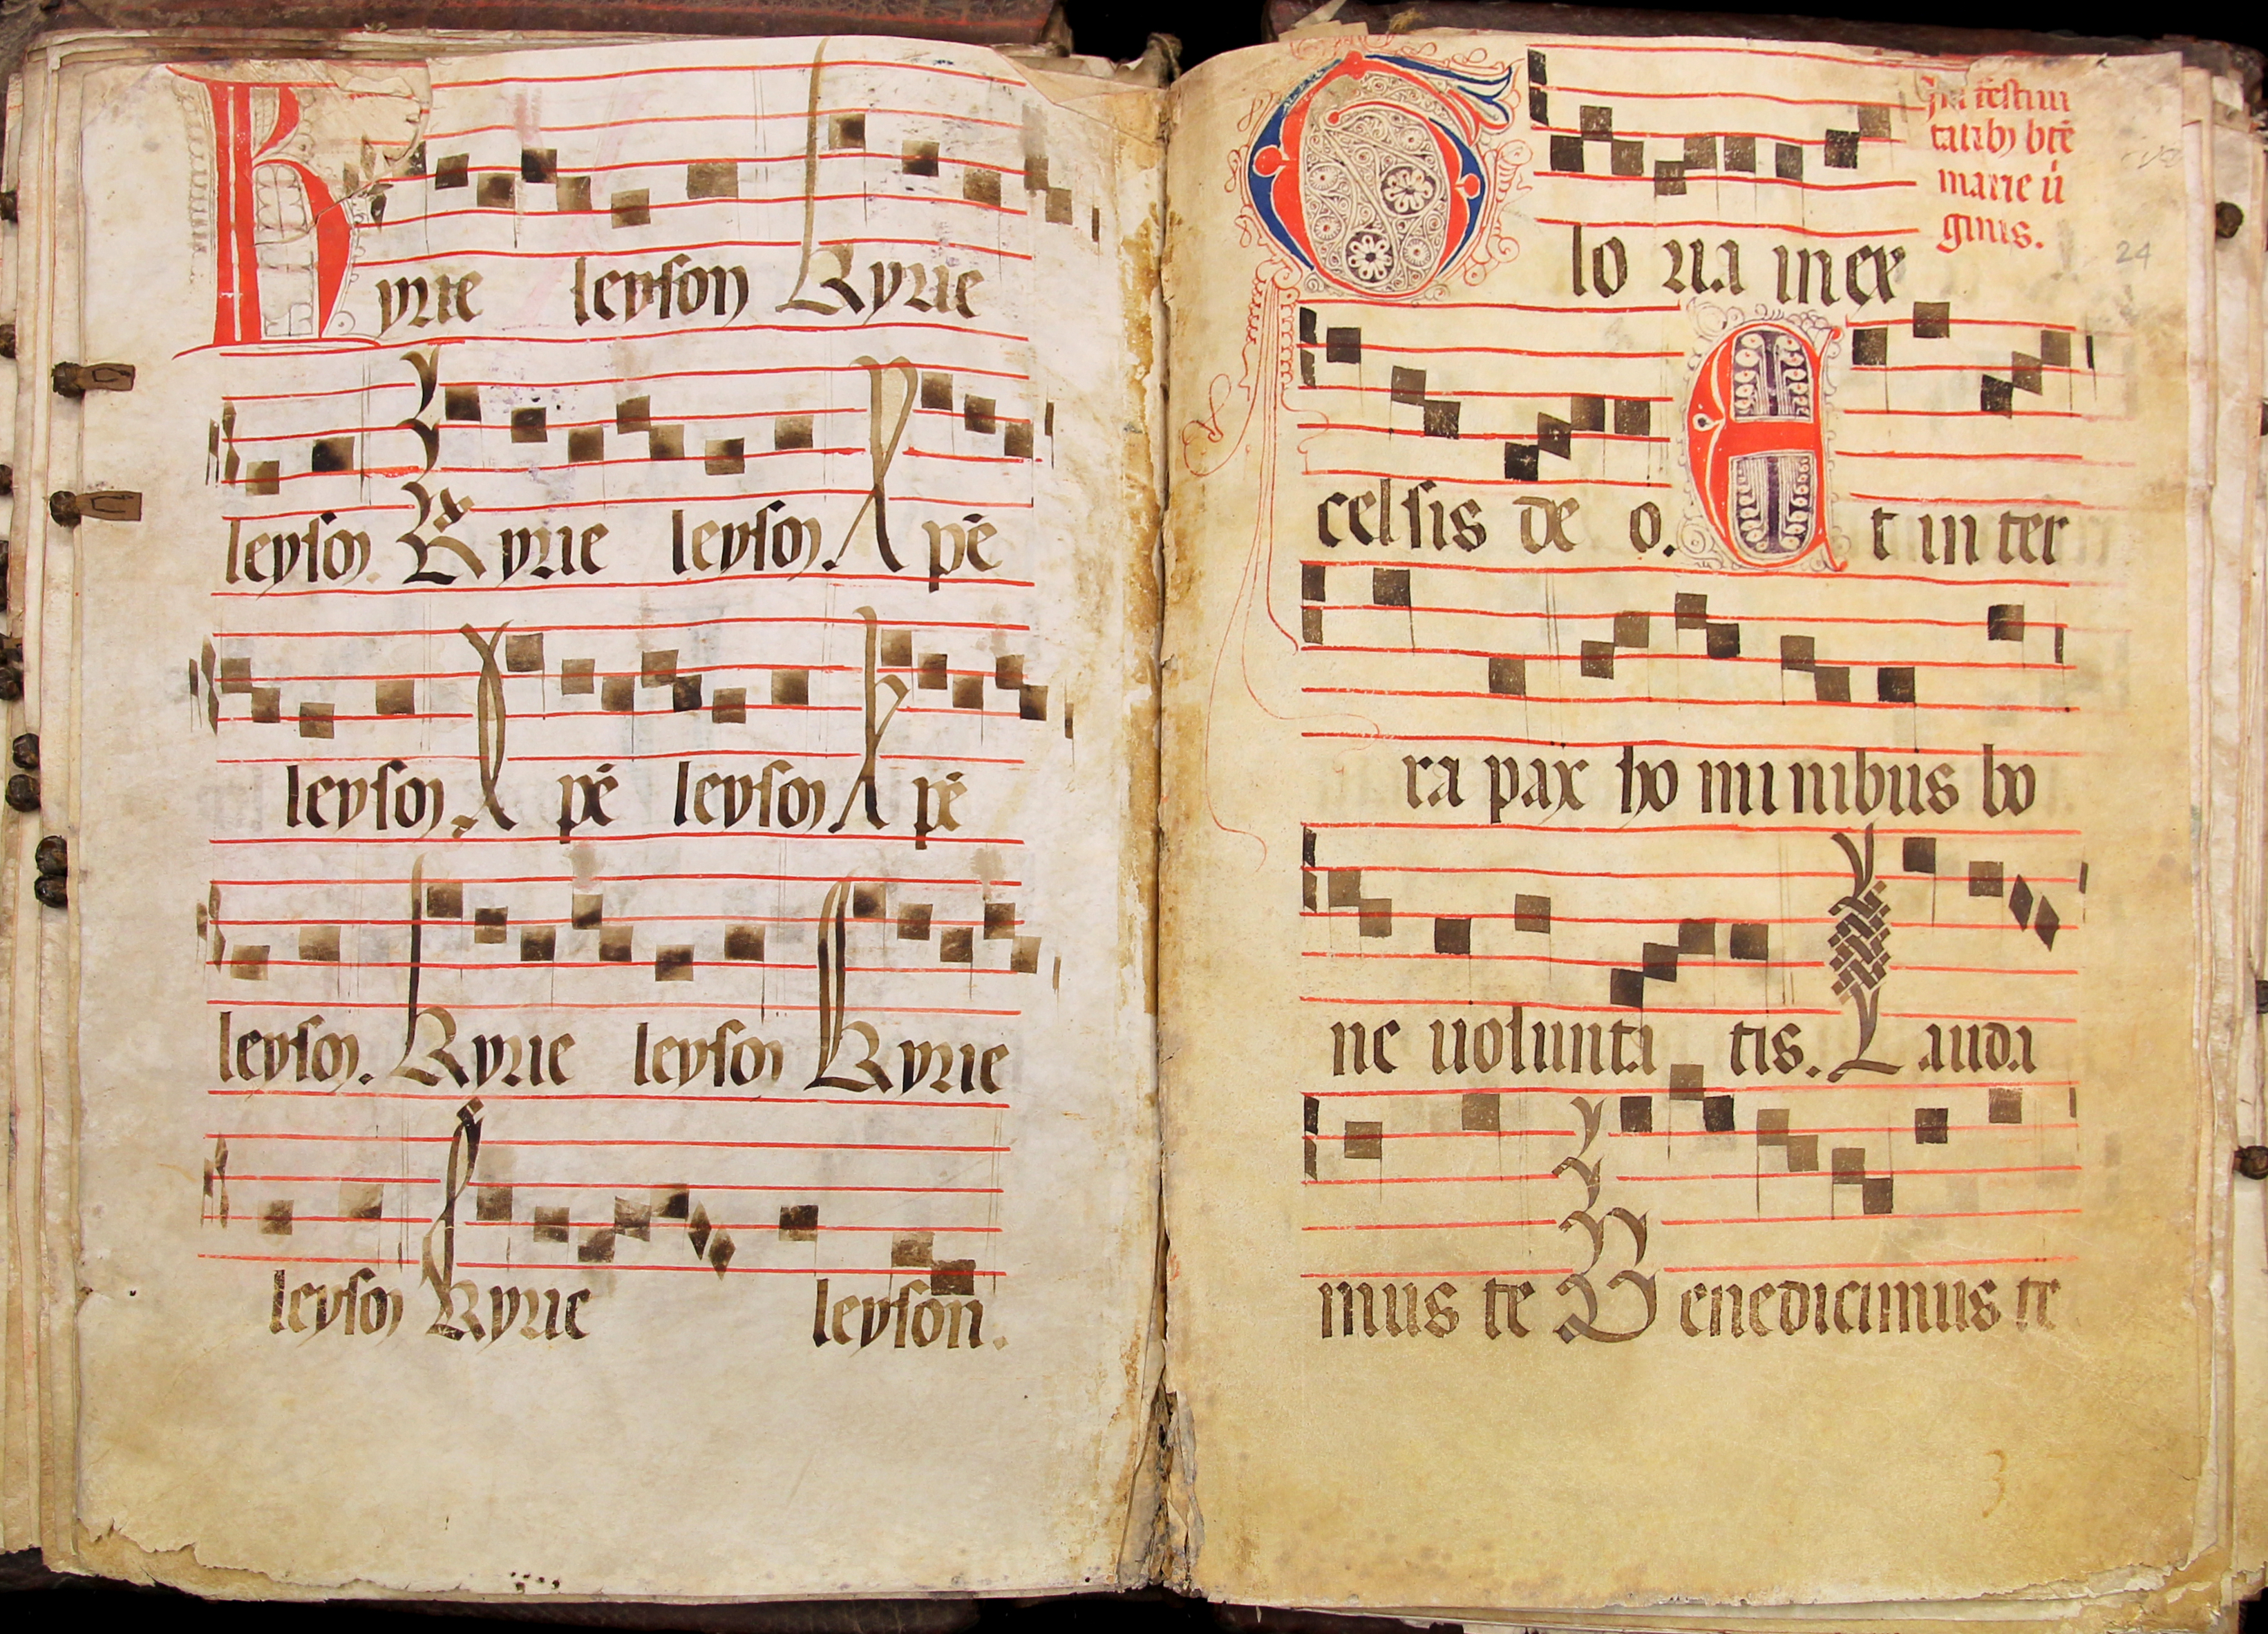 Kyrie leyson Kyrie
leyson. Kyrie leyson. Xpē
leyson. Xpē leyson Xpē
leyson. Kyrie leyson Kyrie
leyson Kyrie leyson.
In festiui
tatibȝ btē
marie ui
ginis.
24
Glo ria in ex
celsis de o. Et in ter
ra pax ho mi nibus bo
ne uolunta tis. Lauda
mus te Benedicimus te
3